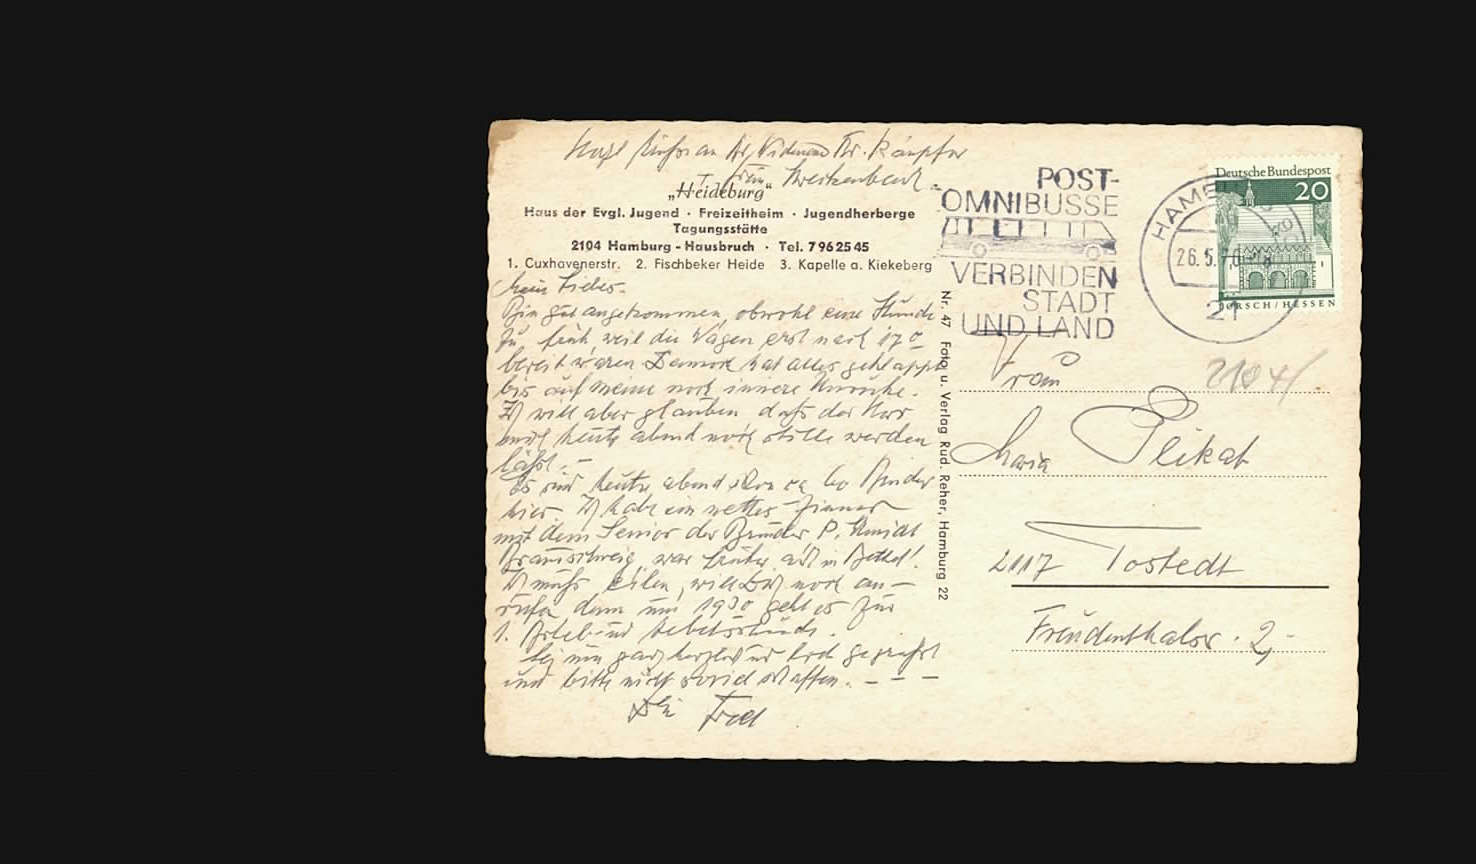 „Heideburg“
Haus der Evgl. Jugend · Freizeitheim · Jugendherberge
Tagungsstätte
2104 Hamburg - Hausbruch · Tel. 7 96 25 45
1. Cuxhavenerstr. 2. Fischbeker Heide 3. Kapelle a. Kiekeberg
Mein Liebes.
Bin gut angekommen, obwohl eine Stunde
zu früh, weil die Wagen erst nach 17°°
bereit waren Dennoch hat alles geklappt
bis auf meine noch innere Unruhe.
Ich will aber glauben daß der Herr
mich heute abend noch stille werden
läßt. –
Es sind heute abend schon ca 60 Brüder
hier. Ich habe ein nettes Zimmer
mit dem Senior der Brüder P. Schmidt
Braunschweig, war früher auch in Bethel!
Ich muß eilen, will Dich noch an-
rufen denn um 1930 geht es zur
1. Bibel und Gebetsstunde.
Sei nun ganz herzlich und lieb gegrüßt
und bitte nicht soviel schaffen. – – –
Dein Fred
Nr. 47 Foto u. Verlag Rud. Reher, Hamburg 22
POST-
OMNIBUSSE
VERBINDEN
STADT
UND LAND
HAMBURG
26.5.70-18
21
Deutsche Bundespost
20
LORSCH/HESSEN
Frau
Maria Plikat
2117 Tostedt
Freudenthalstr. 2,-